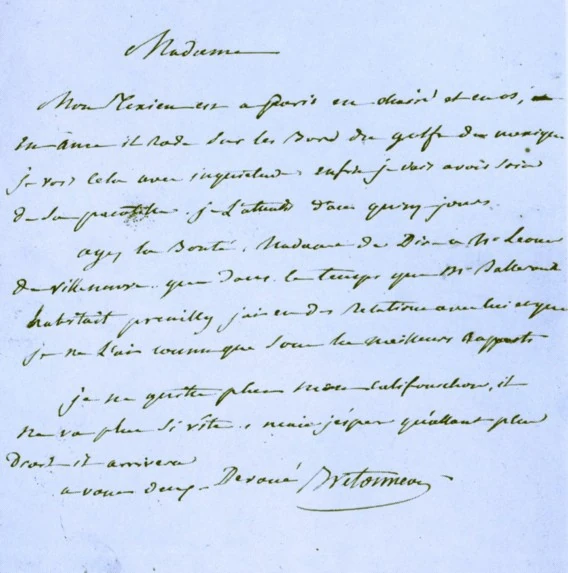 Madame
Mon Mexicain est a Paris en chair et en os,
en âme il rode sur les Bord du golfe du mexique
je vois cela avec inquietude enfin je vais avoir soin
de sa pacotille je L'attends dans quinze jours.
ayez la Bonté, Madame de Dire a Mr Leon
de Villeneuve que dans le temps que Mr
habitait preuilly jai eu des relations avec lui et que
je ne L'ais connu que sous les meilleurs Rapports
je ne quitte plus mon califourchon, il
ne va plus si vite, mais j'esper qu'allant plus
Droit il arrivera
a vous deux Devoué Bretonneau